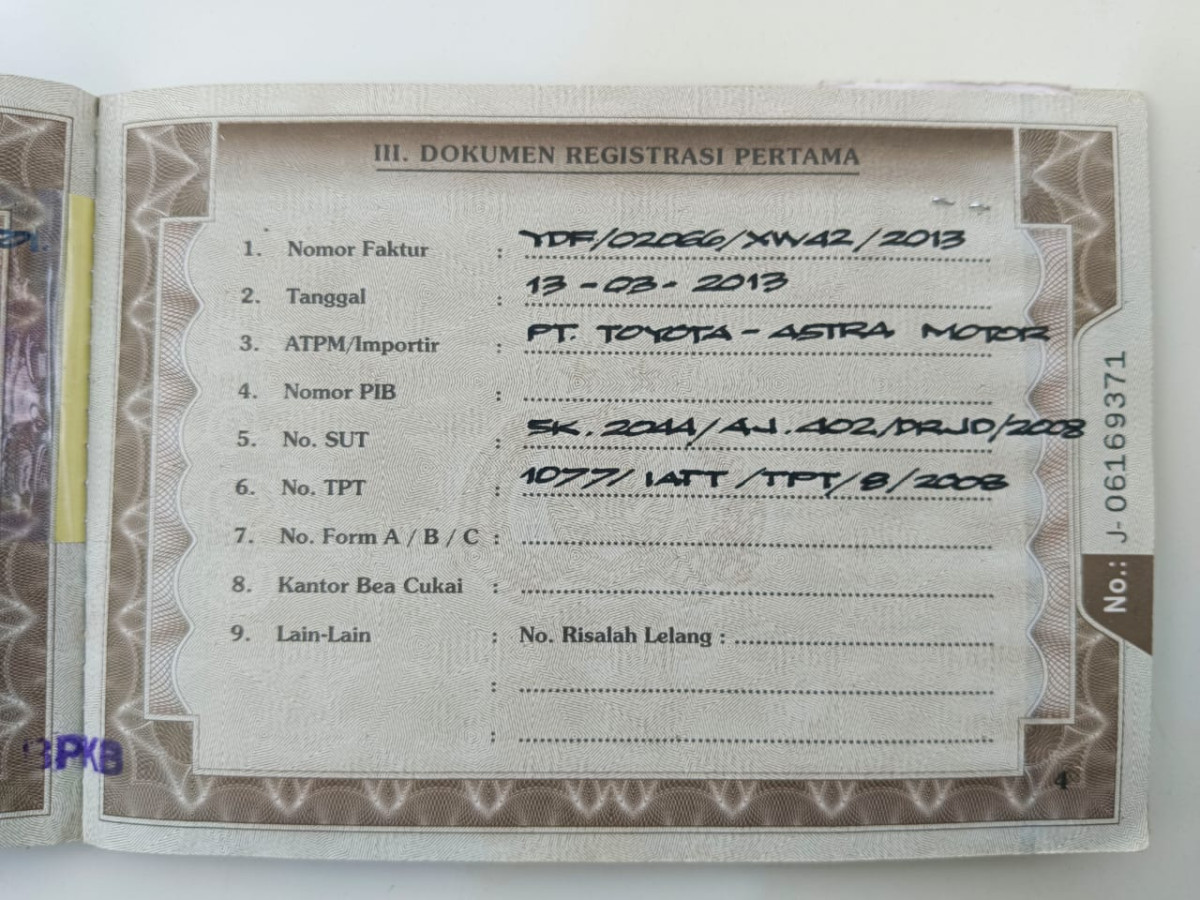 III. DOKUMEN REGISTRASI PERTAMA
1. Nomor Faktur : YDF/02066/XW42/2013
2. Tanggal : 13-03-2013
3. ATPM/Importir : PT. TOYOTA-ASTRA MOTOR
4. Nomor PIB :
5. No. SUT : SK.2044/AJ.402/DRJD/2008
6. No. TPT : 1077/IATT/TPT/8/2008
7. No. Form A / B / C :
8. Kantor Bea Cukai :
9. Lain-Lain : No. Risalah Lelang :
:
:
No.: J-06169371
BPKB
4